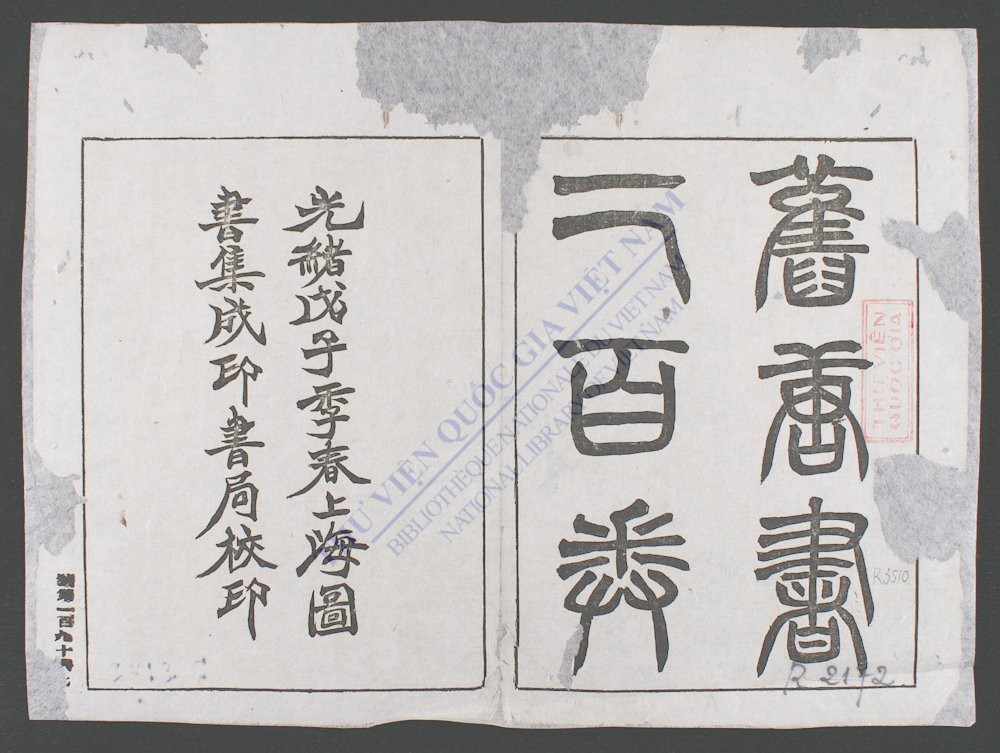 舊唐書
二百卷
光緒戊子季春上海圖
書集成印書局校印
第一百九十
THƯ VIỆN
QUỐC GIA
R.3510
R 2172
THƯ VIỆN QUỐC GIA VIỆT NAM
BIBLIOTHÈQUE NATIONALE DU VIETNAM
NATIONAL LIBRARY OF VIETNAM